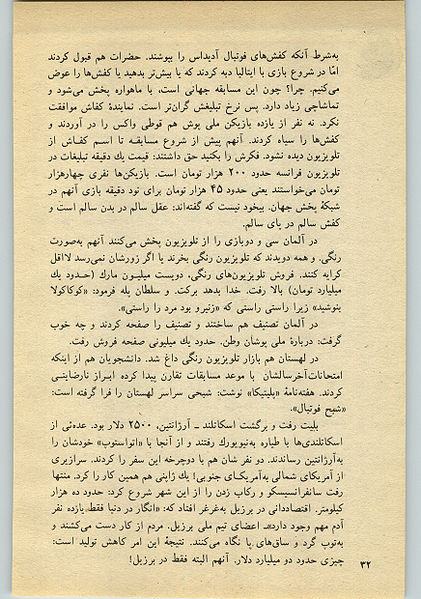 به‌شرط آنکه کفش‌های فوتبال آدیداس را بپوشند. حضرات هم قبول کردند
امّا در شروع بازی با ایتالیا دبه کردند که یا بیش‌تر بدهید یا کفش‌ها را عوض
می‌کنیم. چرا؟ چون این مسابقه جهانی است، با ماهواره پخش می‌شود و
تماشاچی زیاد دارد. پس نرخ تبلیغش گران‌تر است. نمایندهٔ کفاش موافقت
نکرد. نه نفر از یازده بازیکن ملی پوش هم قوطی واکس را در آوردند و
کفش‌ها را سیاه کردند. آنهم پیش از شروع مسابقه تا اسم کفاش از
تلویزیون دیده نشود. فکرش را بکنید حق داشتند: قیمت یك دقیقه تبلیغات در
تلویزیون فرانسه حدود ۲۰۰ هزار تومان است. بازیکن‌ها نفری چهارهزار
تومان می‌خواستند یعنی حدود ۴۵ هزار تومان برای نود دقیقه بازی آنهم در
شبکهٔ پخش جهان. بیخود نیست که گفته‌اند: عقل سالم در بدن سالم است و
کفش سالم در پای سالم.
در آلمان سی و دوبازی را از تلویزیون پخش می‌کنند آنهم به‌صورت
رنگی. و همه دویدند که تلویزیون رنگی بخرند یا اگر زورشان نمی‌رسد لااقل
کرایه کنند. فروش تلویزیون‌های رنگی، دویست میلیـون مارك (حـدود یك
میلیارد تومان) بالا رفت. خدا بدهد برکت. و سلطان پله فرمود: «کوکاکولا
بنوشید» زیرا راستی راستی که «زنیرو بود مرد را راستی».
در آلمان تصنیف هم ساختند و تصنیف را صفحه کردند و چه خوب
گرفت: دربارهٔ ملی پوشان وطن. حدود یك میلیونی صفحه فروش رفت.
در لهستان هم بازار تلویزیون رنگی داغ شد. دانشجویان هم از اینکه
امتحانات‌آخرسالشان با موعد مسابقات تقارن پیدا کرده ابـراز نارضایتـی
کردند. هفته‌نامهٔ «پلیتیکا» نوشت: شبحی سراسر لهستان را فرا گرفته است:
«شبح فوتبال».
بلیت رفت و برگشت اسکاتلند ـ آرژانتین، ۲۵۰۰ دلار بود. عده‌ئی از
اسکاتلندی‌ها با طیاره به‌نیویورك رفتند و از آنجا با «اتواستوپ» خودشان را
به‌آرژانتین رساندند. دو نفر شان هم با دوچرخه این سفر را کردند. سرازیری
از آمریکای شمالی به‌آمریکـای جنوبی! یك ژاپنی هم همین کار را کرد. منتها
رفت سانفرانسیسکو و رکاب زدن را از این شهر شروع کرد: حدود ده هزار
کیلومتر. اقتصاددانی در برزیل به‌غرغر افتاد که: «انگار در دنیا فقط یازده نفر
آدم مهم وجود دارد» اعضای تیم ملی برزیل. مردم از کار دست می‌کشند و
به‌توپ گرد و ساق‌های پا نگاه می‌کنند. نتیجهٔ این امر کاهش تولید است:
چیزی حدود دو میلیارد دلار. آنهم البته فقط در برزیل!
۳۲